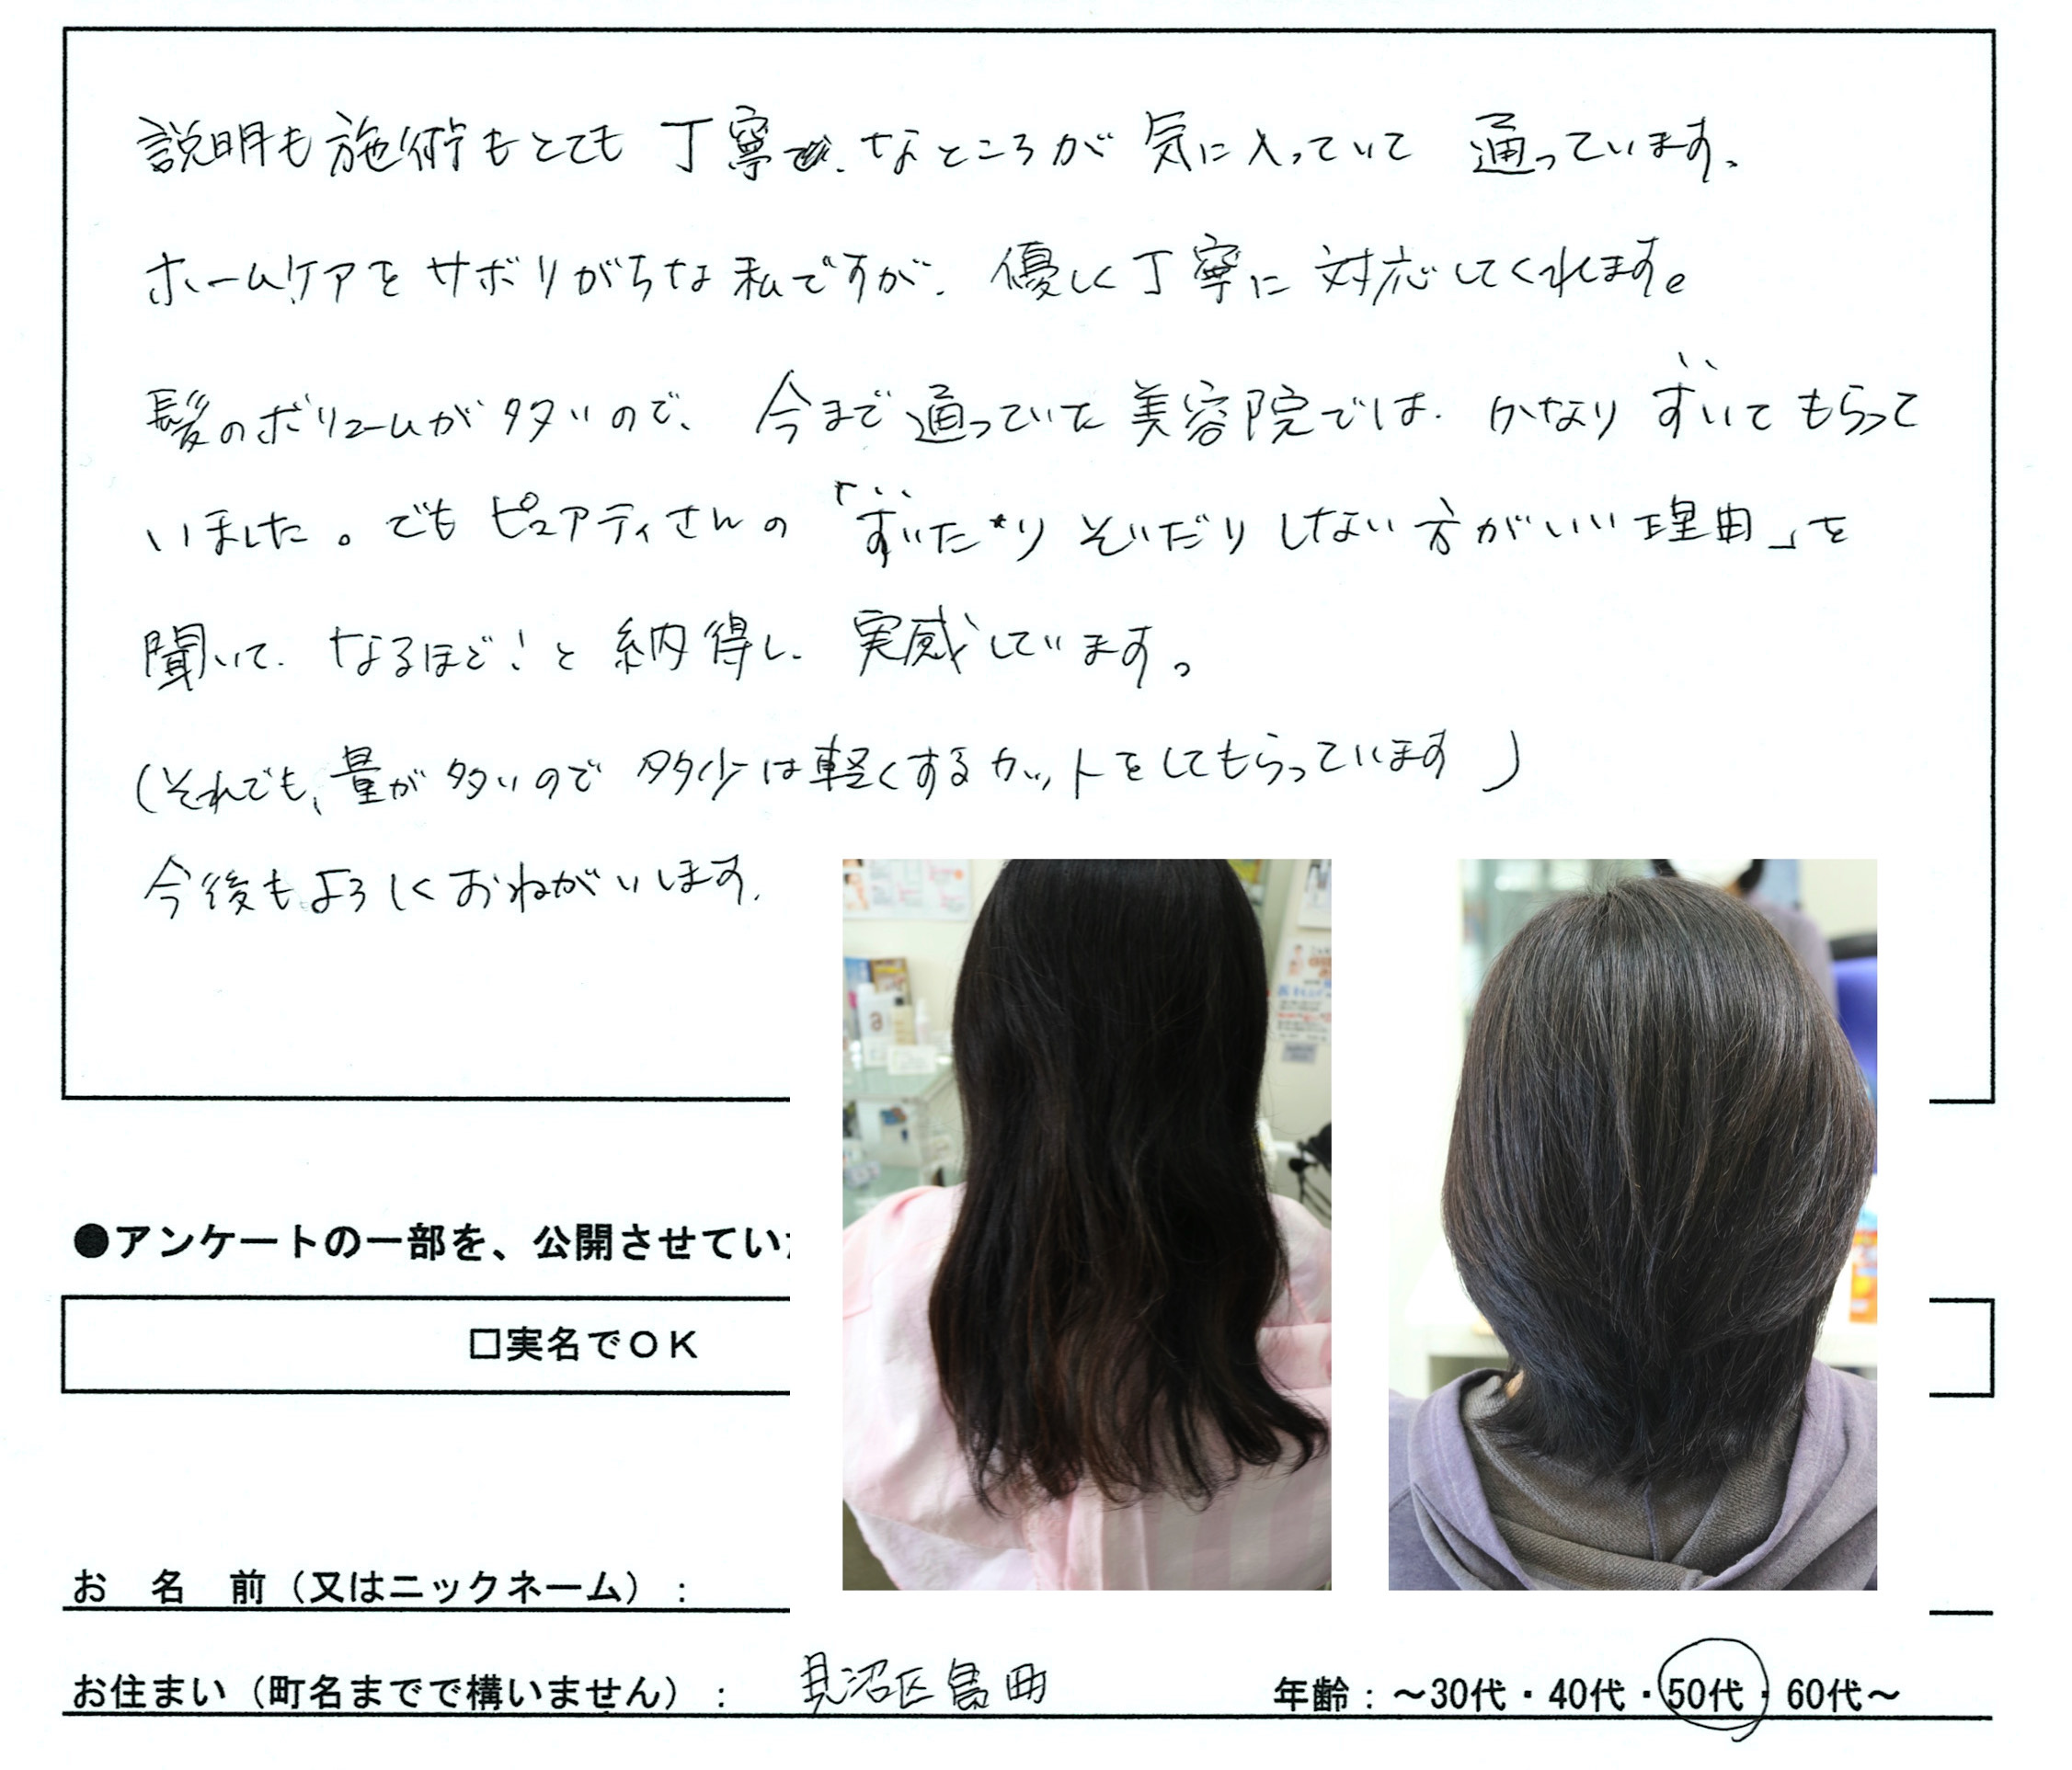 説明も施術もとても丁寧なところが気に入っていて通っています。
ホームケアをサボりがちな私ですが、優しく丁寧に対応してくれます。
髪のボリュームが多いので、今まで通っていた美容院では、かなりすいてもらって
いました。でもピュアティさんの「すいたりそいだりしない方がいい理由」を
聞いて、なるほど!と納得し、実感しています。
(それでも、量が多いので多少は軽くするカットをしてもらっています)
今後もよろしくおねがいします。
●アンケートの一部を、公開させてい
□実名でOK
お 名 前(又はニックネーム):
お住まい(町名までで構いません): 見沼区島町 年齢:~30代・40代・50代・60代~